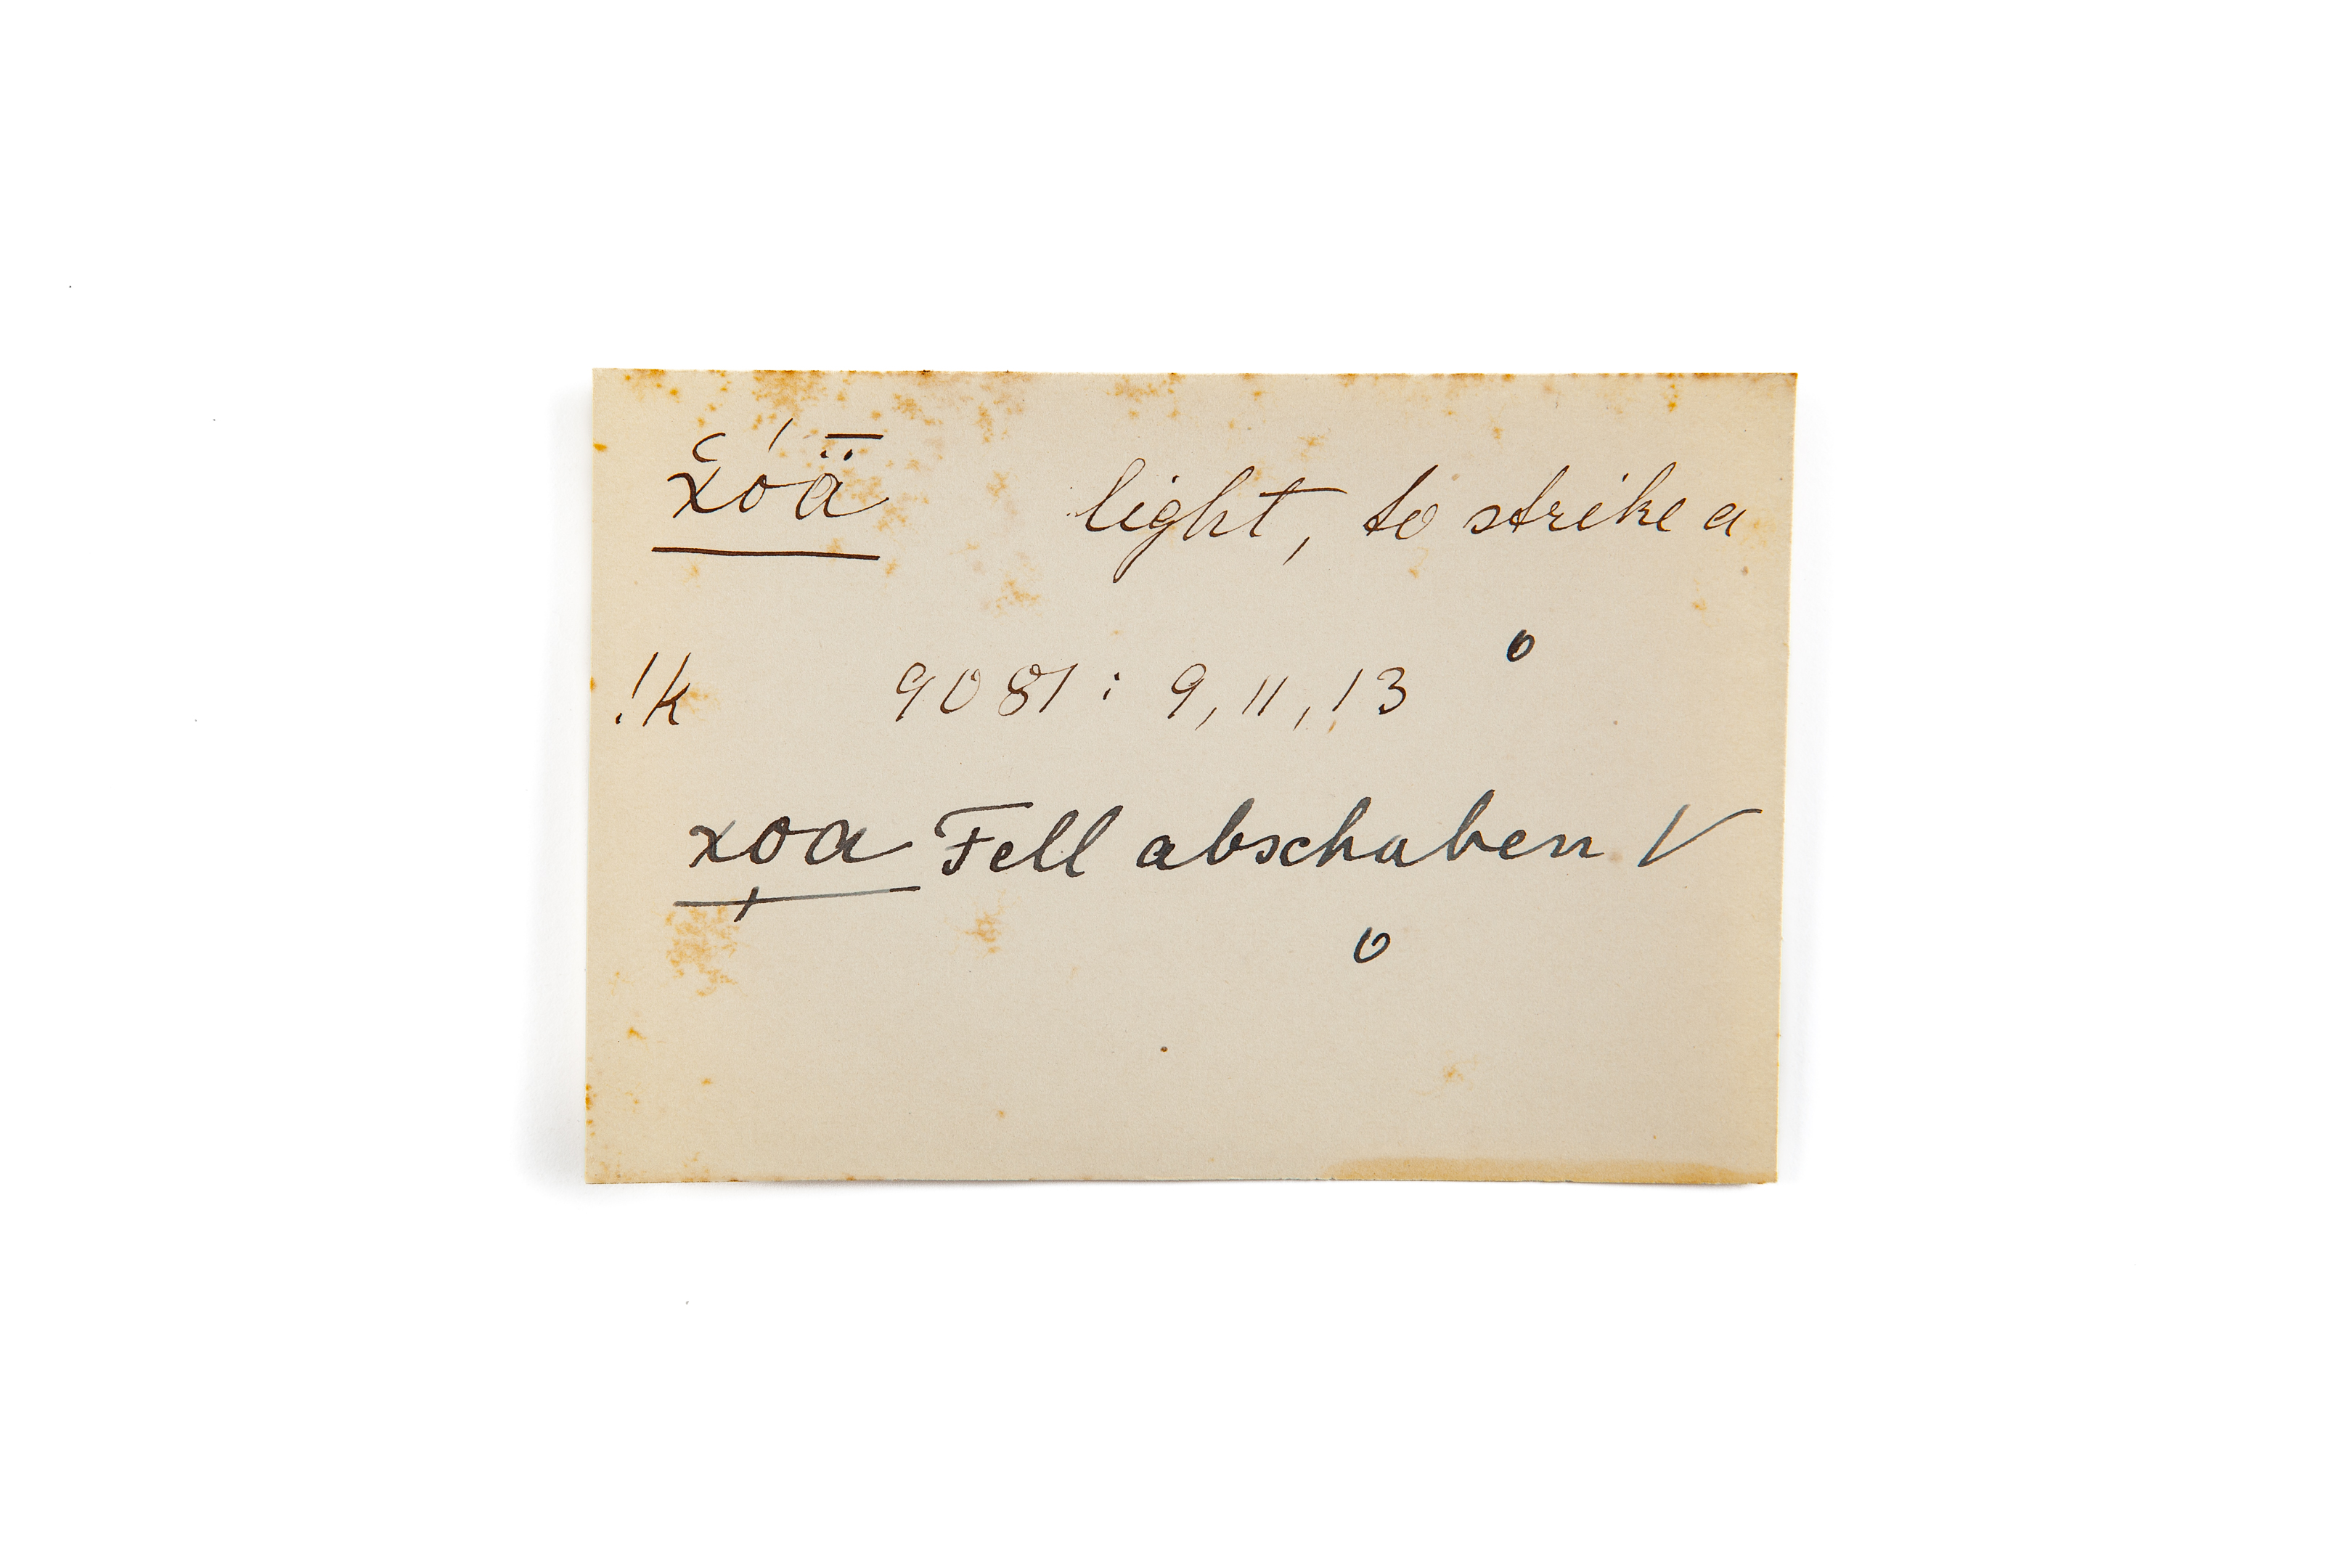 x̔óǟ light, to strike a
!k 9081 : 9, 11, 13 o
xoa Fell abschaben V
o